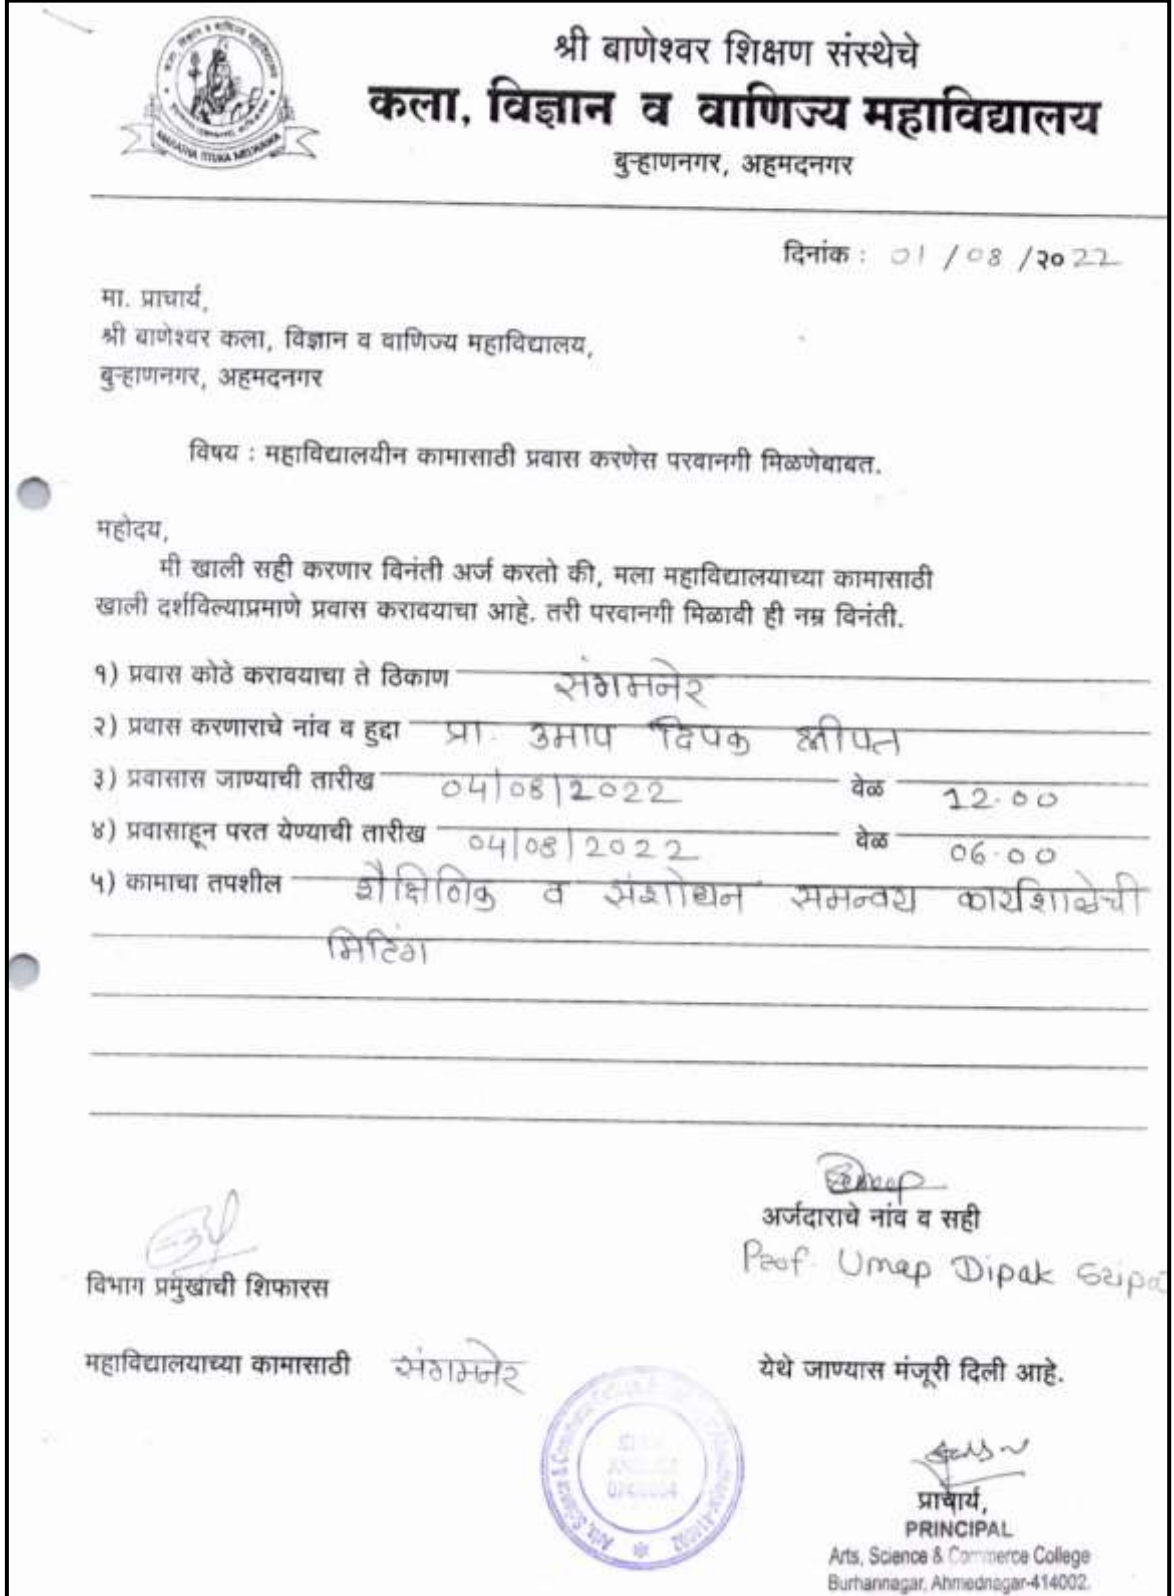 श्री बाणेश्वर शिक्षण संस्थेचे
कला, विज्ञान व वाणिज्य महाविद्यालय
बुऱ्हाणनगर, अहमदनगर
दिनांक : 01 / 08 /२०22
मा. प्राचार्य,
श्री बाणेश्वर कला, विज्ञान व वाणिज्य महाविद्यालय,
बुऱ्हाणनगर, अहमदनगर
विषय : महाविद्यालयीन कामासाठी प्रवास करणेस परवानगी मिळणेबाबत.
महोदय,
मी खाली सही करणार विनंती अर्ज करतो की, मला महाविद्यालयाच्या कामासाठी
खाली दर्शविल्याप्रमाणे प्रवास करावयाचा आहे. तरी परवानगी मिळावी ही नम्र विनंती.
१) प्रवास कोठे करावयाचा ते ठिकाण संगमनेर
२) प्रवास करणाराचे नांव व हुद्दा प्रा. उमाप दिपक श्रीपत
३) प्रवासास जाण्याची तारीख 04/08/2022 वेळ 12.00
४) प्रवासाहून परत येण्याची तारीख 04/08/2022 वेळ 06.00
५) कामाचा तपशील शैक्षिणिक व संशोधन समन्वय कार्यशाळेची
मिटिंग
अर्जदाराचे नांव व सही
Prof. Umap Dipak Sripa
विभाग प्रमुखांची शिफारस
महाविद्यालयाच्या कामासाठी संगमनेर येथे जाण्यास मंजूरी दिली आहे.
प्राचार्य,
PRINCIPAL
Arts, Science & Commerce College
Burhannagar, Ahmednagar-414002.